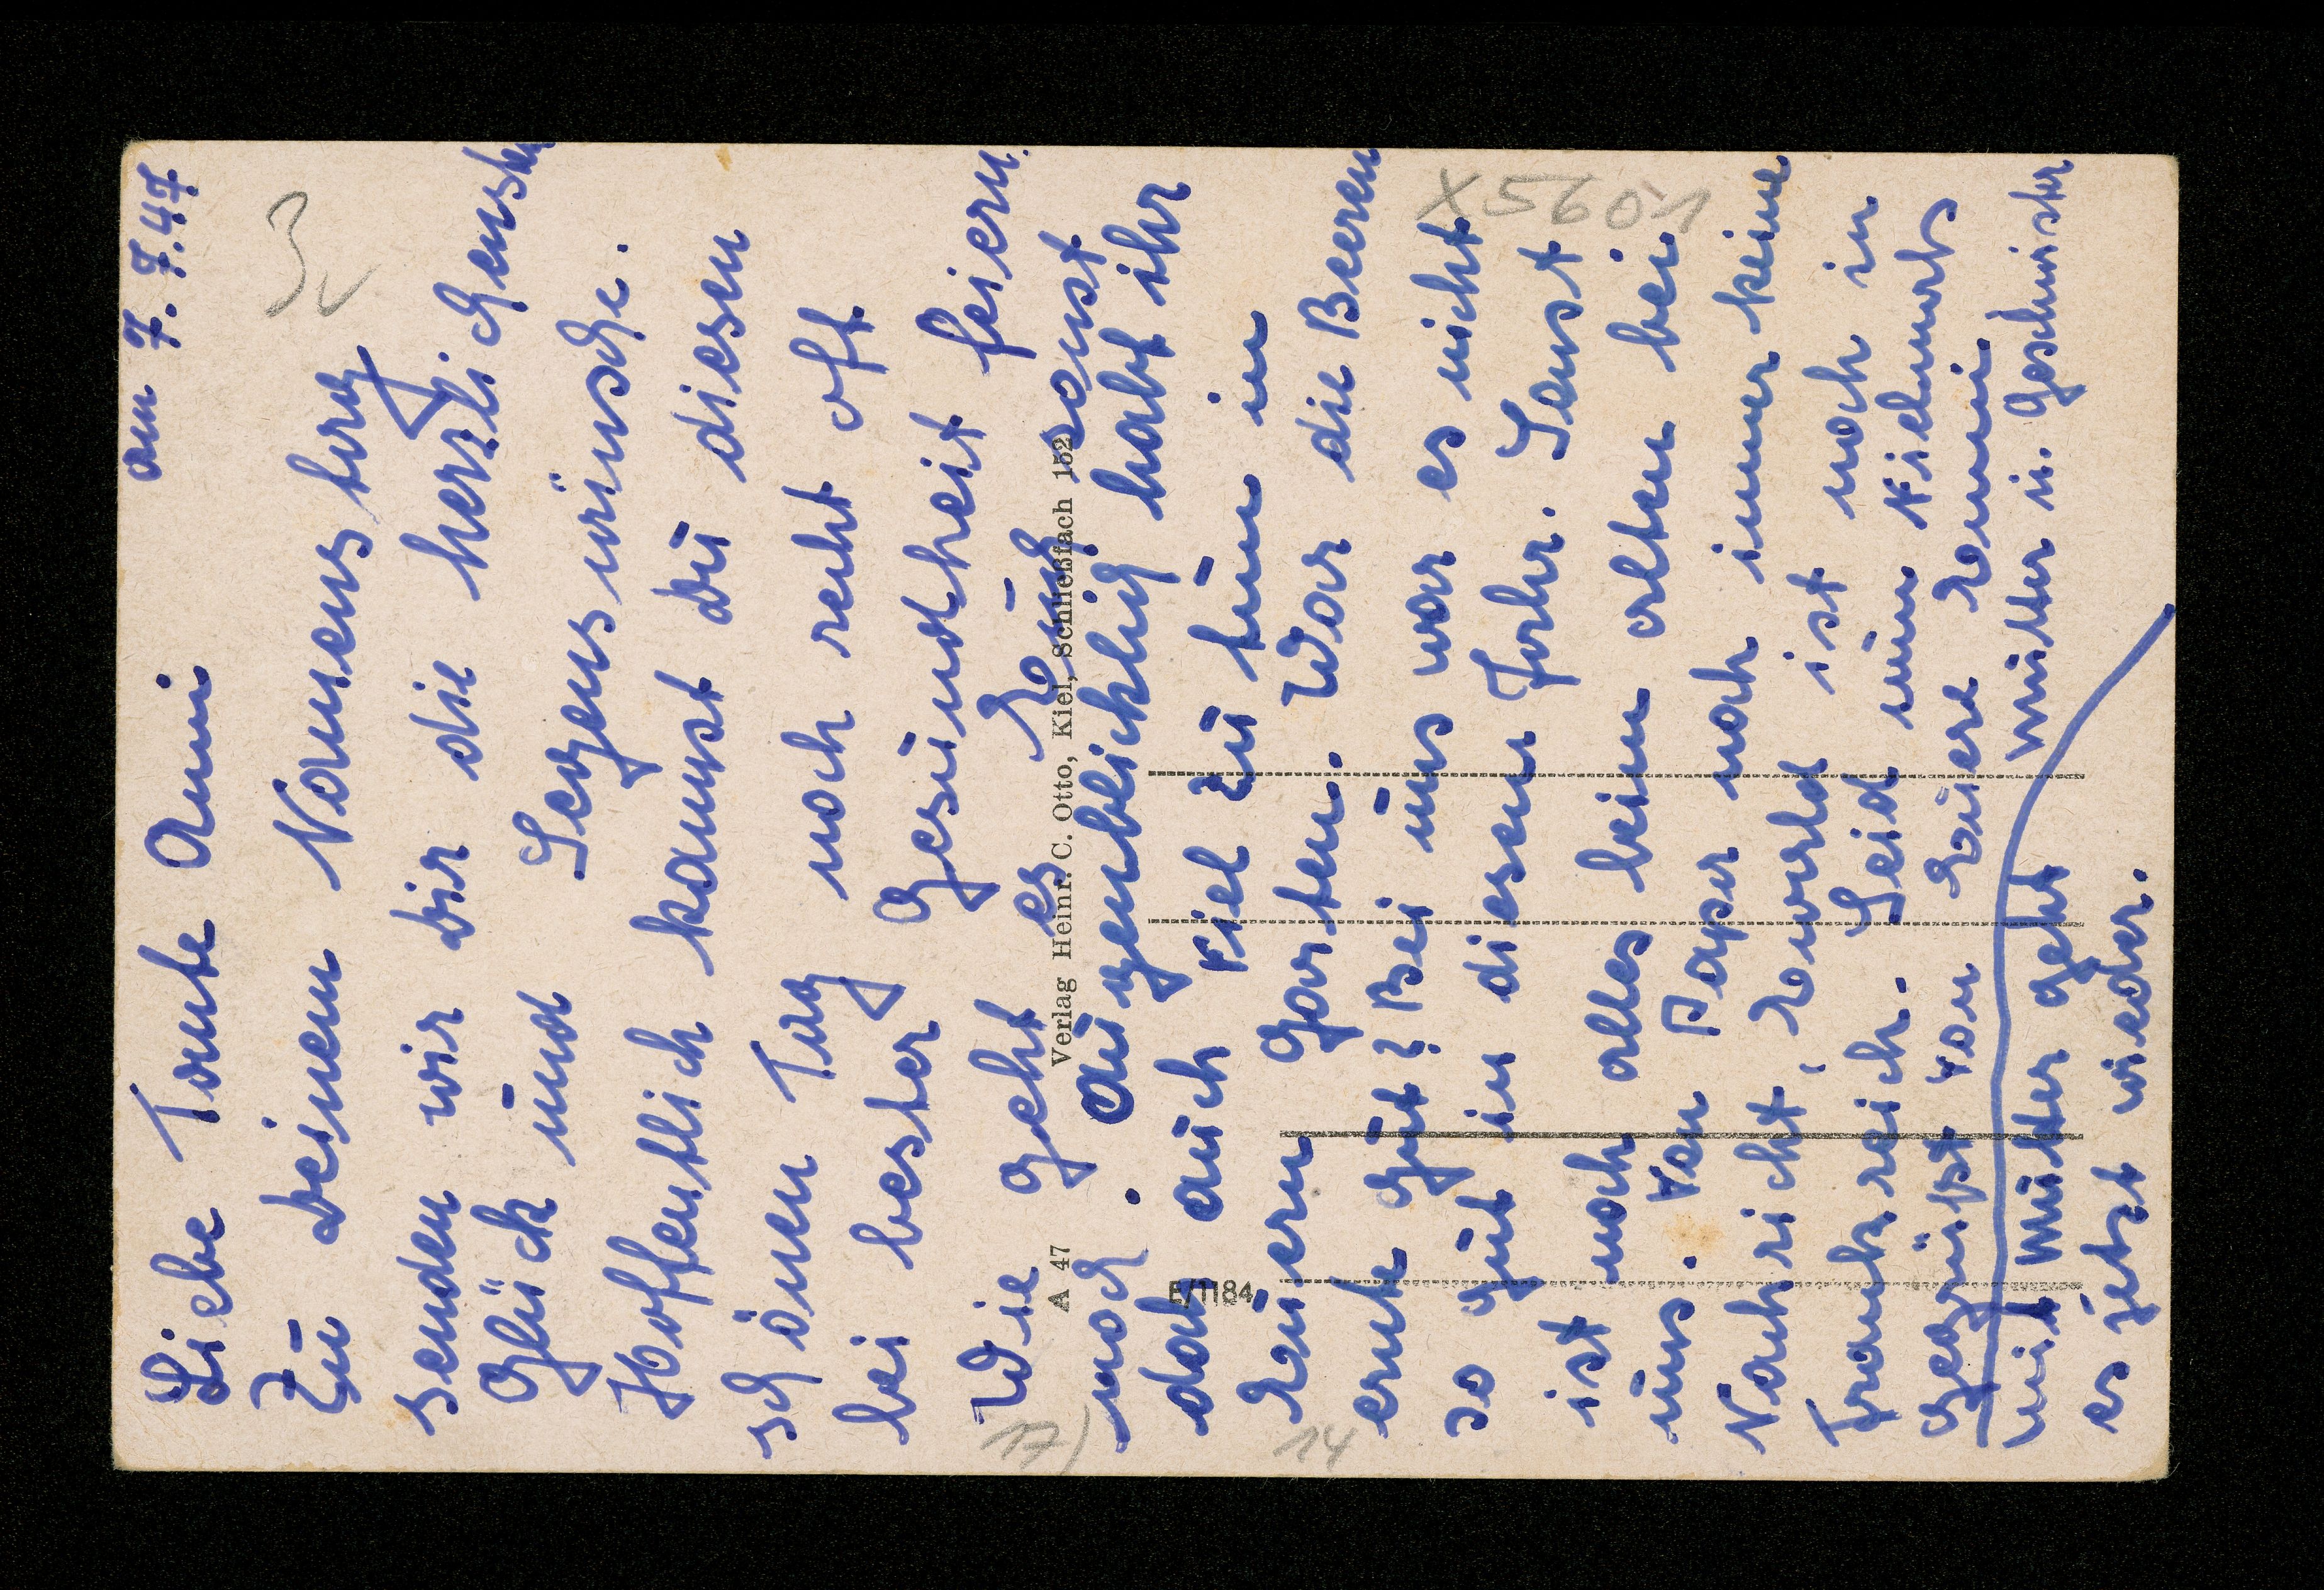 am 7.7.47
Liebe Tante Anni
Zu deinem Namenstag
senden wir dir die herzlichensten
Glück und Segenswünsche.
Hoffentlich kannst du diesen
schönen Tag noch recht oft
bei bester Gesundheit feiern.
Wie geht es Euch sonst
noch. Augenblicklich habt ihr
doch auch viel zu tun in
Euern Garten. War die Beeren
ernte gut? Bei uns war es nicht
so gut in diesem Jahr. Sonst
ist noch alles beim alten bei
uns. Von Papa noch immer keine
Nachricht, Ewald ist noch in
Frankreich. Seid nun vielmals
gegrüßt von Euere Emmi
Mutter u. Geschwister
Mit Mutter geht
es jetzt wieder.
A 47 Verlag Heinr. C. Otto, Kiel, Schließfach 152
184
X5601
17)
14